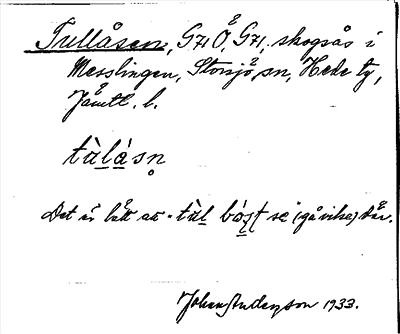 Tullåsen, G71 Ö, G71, skogsås i
Messlingen, Storsjö sn, Hede tg,
Jämtl. l.
tùlásn̥
Det är lätt att tùl bó̱ʂt se (gå vilse) där.
Johan Anderzson 1933.